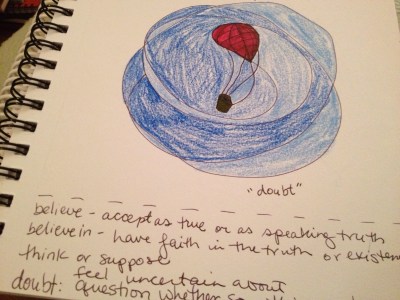 "doubt"
believe - accept as true or as speaking truth
believe in - have faith in the truth or existen
think or suppose
feel uncertain about
doubt: question whether